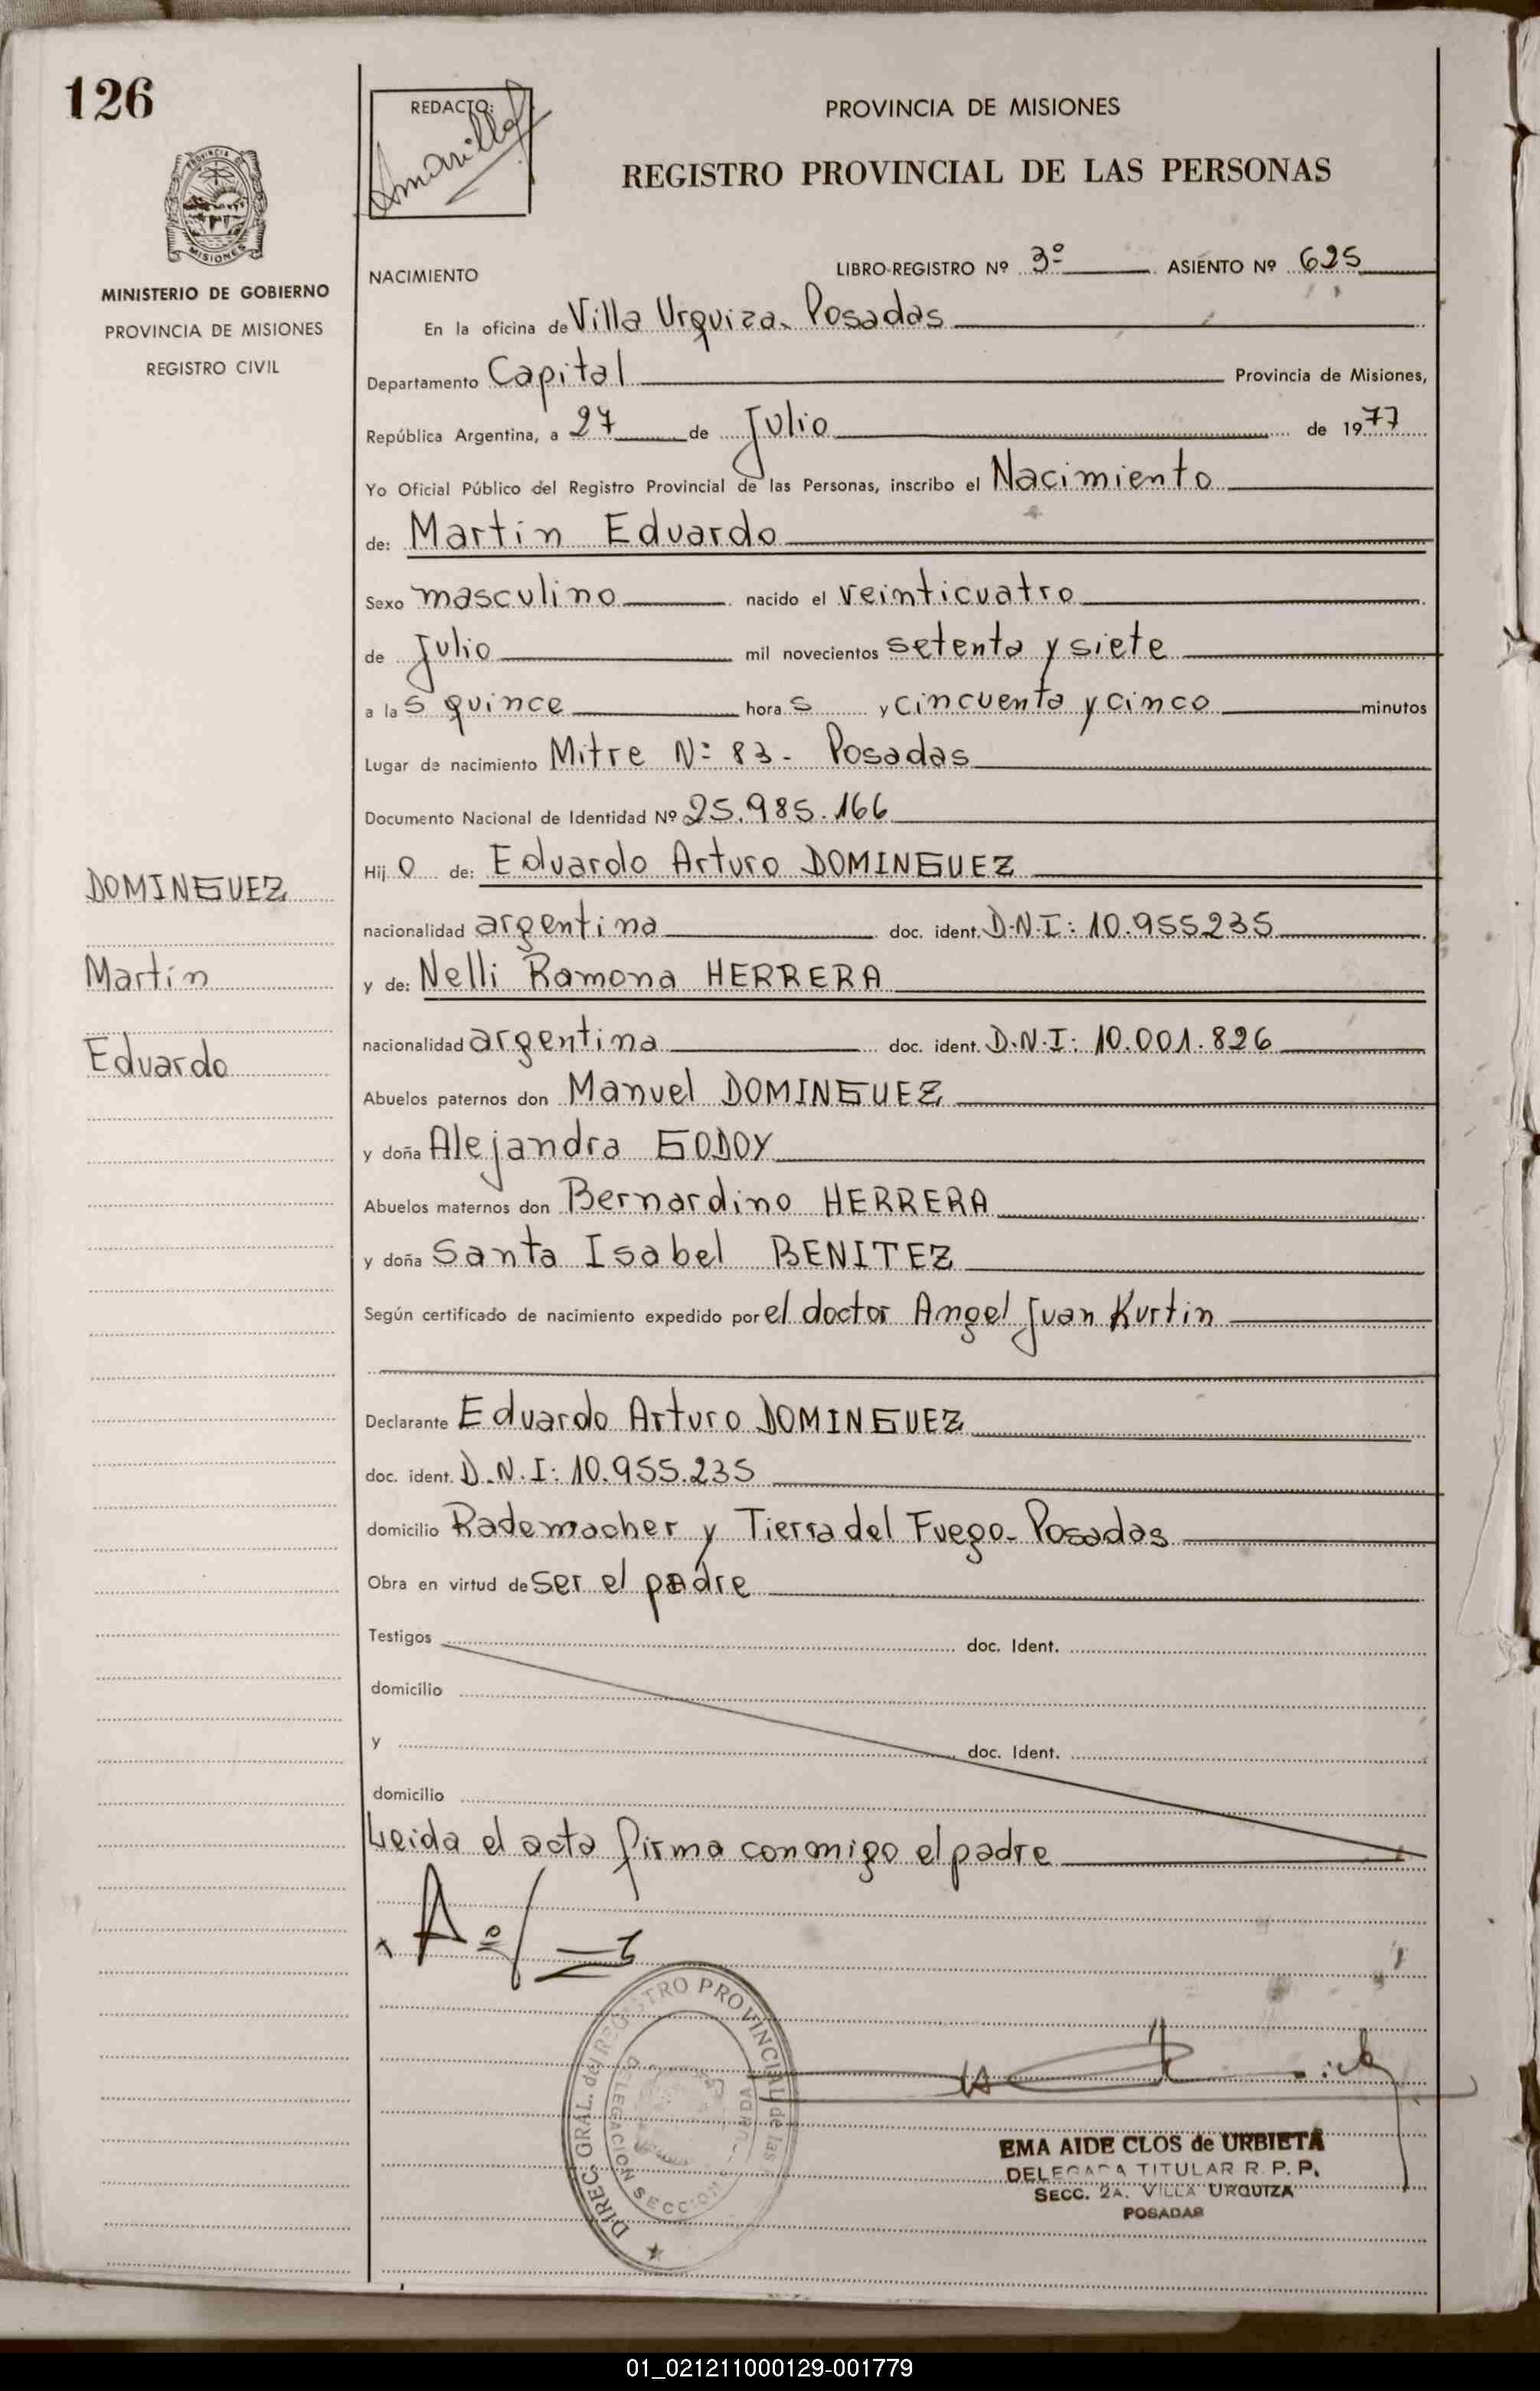 126
REDACTO:
Amarilla
PROVINCIA DE MISIONES
REGISTRO PROVINCIAL DE LAS PERSONAS
PROVINCIA DE
MISIONES
MINISTERIO DE GOBIERNO
PROVINCIA DE MISIONES
REGISTRO CIVIL
NACIMIENTO
LIBRO-REGISTRO Nº 3º ASIENTO Nº 625
En la oficina de Villa Urquiza. Posadas
Departamento Capital Provincia de Misiones,
República Argentina, a 27 de Julio de 1977
Yo Oficial Público del Registro Provincial de las Personas, inscribo el Nacimiento
de: Martín Eduardo
Sexo masculino nacido el veinticuatro
de Julio mil novecientos setenta y siete
a las quince horas y cincuenta y cinco minutos
Lugar de nacimiento Mitre Nº 83 - Posadas
Documento Nacional de Identidad Nº 25.985.166
Hijo de: Eduardo Arturo DOMINGUEZ
nacionalidad argentina doc. ident. D.N.I: 10.955235
y de: Nelli Ramona HERRERA
nacionalidad argentina doc. ident. D.N.I: 10.001.826
Abuelos paternos don Manuel DOMINGUEZ
y doña Alejandra GODOY
Abuelos maternos don Bernardino HERRERA
y doña Santa Isabel BENITEZ
Según certificado de nacimiento expedido por el doctor Angel Juan Kurtin
Declarante Eduardo Arturo DOMINGUEZ
doc. ident. D.N.I: 10.955.235
domicilio Rademacher y Tierra del Fuego - Posadas
Obra en virtud de ser el padre
Testigos doc. Ident.
domicilio
y doc. Ident.
domicilio
Leida el acta firma conmigo el padre
DOMINGUEZ
Martín
Eduardo
DIREC. GRAL. del REGISTRO PROVINCIAL de las
DELEGACION SECCION
EMA AIDE CLOS de URBIETA
DELEGADA TITULAR R. P. P.
SECC. 2A. VILLA URQUIZA
POSADAS
01_021211000129-001779